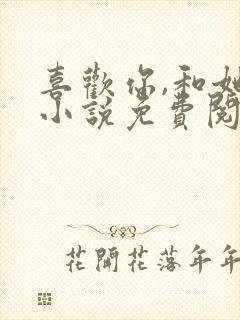 喜歡你,和她
小說免費閱
花開花落年年